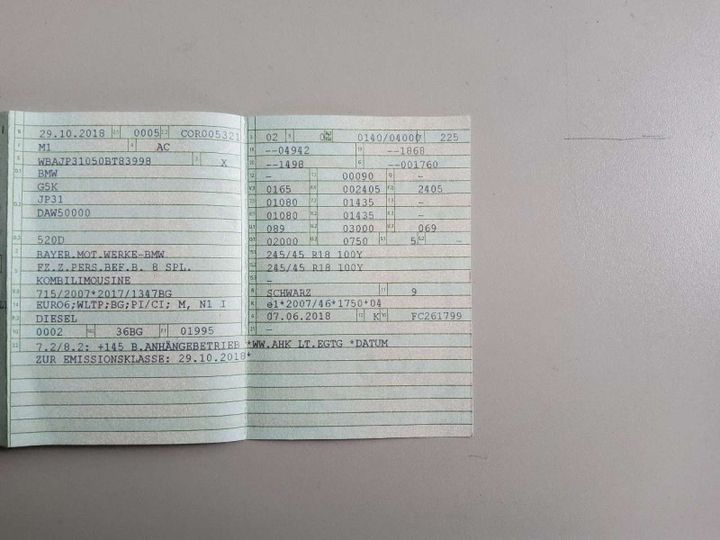 29.10.2018 0005 COR005321
M1 AC
WBAJP31050BT83998 X
BMW
G5K
JP31
DAW50000
520D
BAYER.MOT.WERKE-BMW
FZ.Z.PERS.BEF.B. 8 SPL.
KOMBILIMOUSINE
715/2007*2017/1347BG
EURO6;WLTP;BG;PI/CI; M, N1 I
DIESEL
0002 36BG 01995
7.2/8.2: +145 B.ANHÄNGEBETRIEB *WW.AHK LT.EGTG *DATUM
ZUR EMISSIONSKLASSE: 29.10.2018*
02 0140/04000 225
--04942 --1868
--1498 --001760
- 00090 -
0165 002405 2405
01080 01435 -
01080 01435 -
089 03000 069
02000 0750 5 -
245/45 R18 100Y
245/45 R18 100Y
-
SCHWARZ 9
e1*2007/46*1750*04
07.06.2018 K FC261799
-